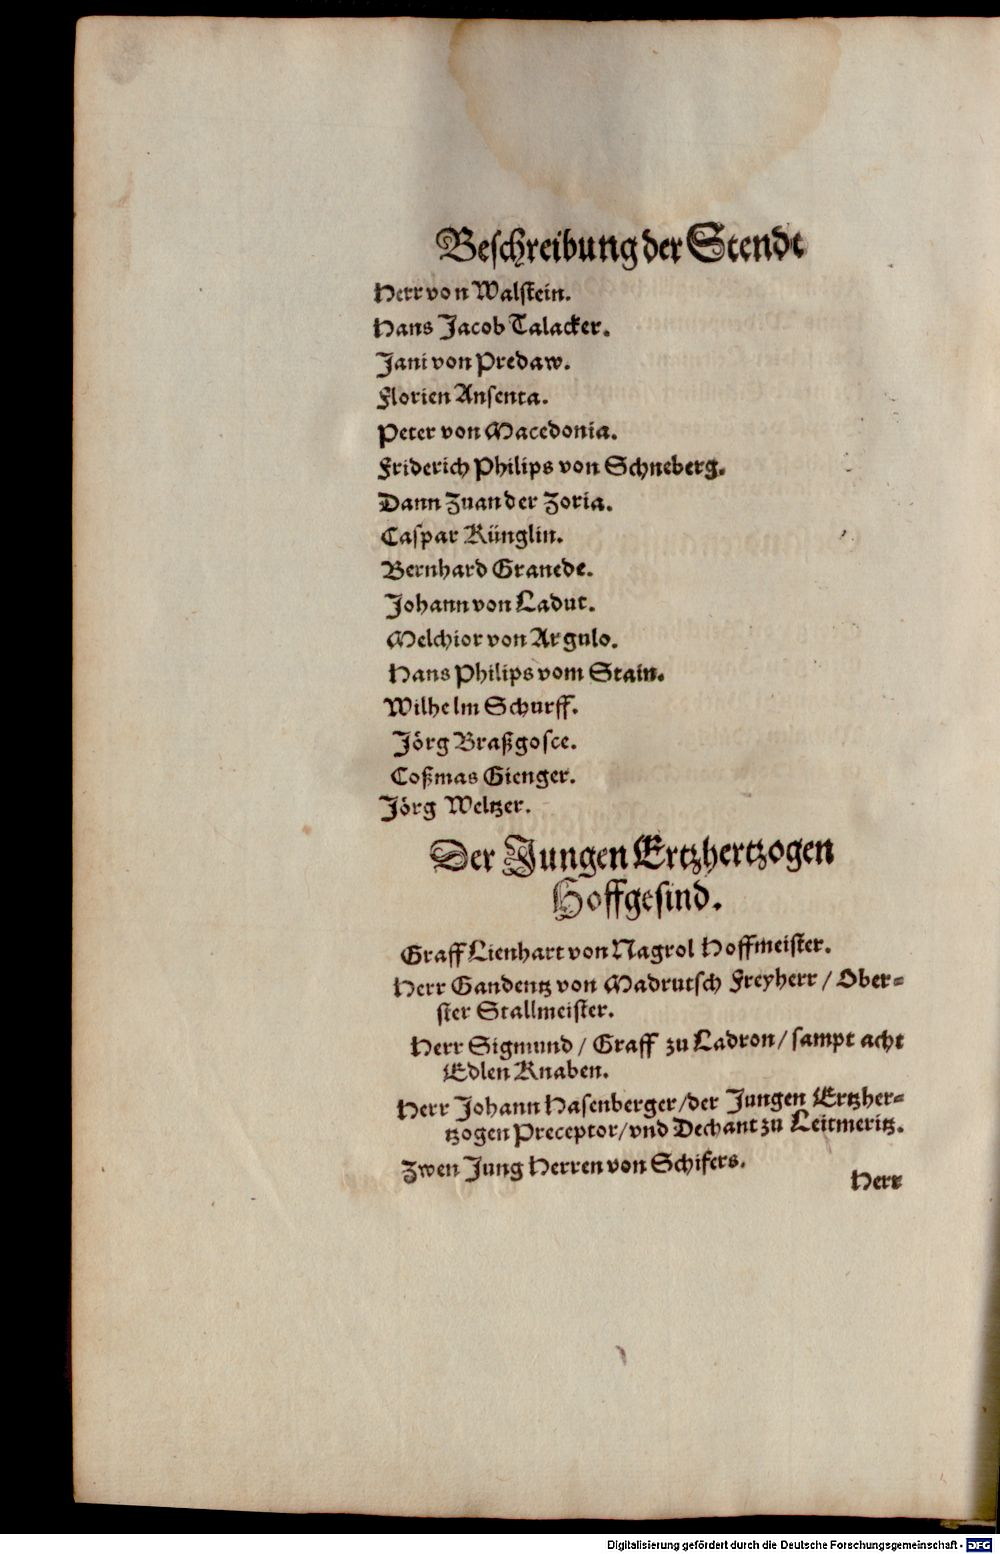 Beschreibung der Stendt
Herr von Walstein.
Hans Jacob Talacker.
Jani von Predaw.
Florien Ansenta.
Peter von Macedonia.
Friderich Philips von Schneberg.
Dann Zuan der Zoria.
Caspar Künglin.
Bernhard Granede.
Johann von Ladut.
Melchior von Argulo.
Hans Philips vom Stain.
Wilhelm Schurff.
Jörg Braßgosce.
Coßmas Gienger.
Jörg Weltzer.
Der Jungen Ertzhertzogen
Hoffgesind.
Graff Lienhart von Nagrol Hoffmeister.
Herr Gandentz von Madrutsch Freyherr / Ober-
ster Stallmeister.
Herr Sigmund / Graff zu Ladron / sampt acht
Edlen Knaben.
Herr Johann Hasenberger / der Jungen Ertzher-
tzogen Preceptor / vnd Dechant zu Leitmeritz.
Zwen Jung Herren von Schifers.
Herr
Digitalisierung gefördert durch die Deutsche Forschungsgemeinschaft - DFG